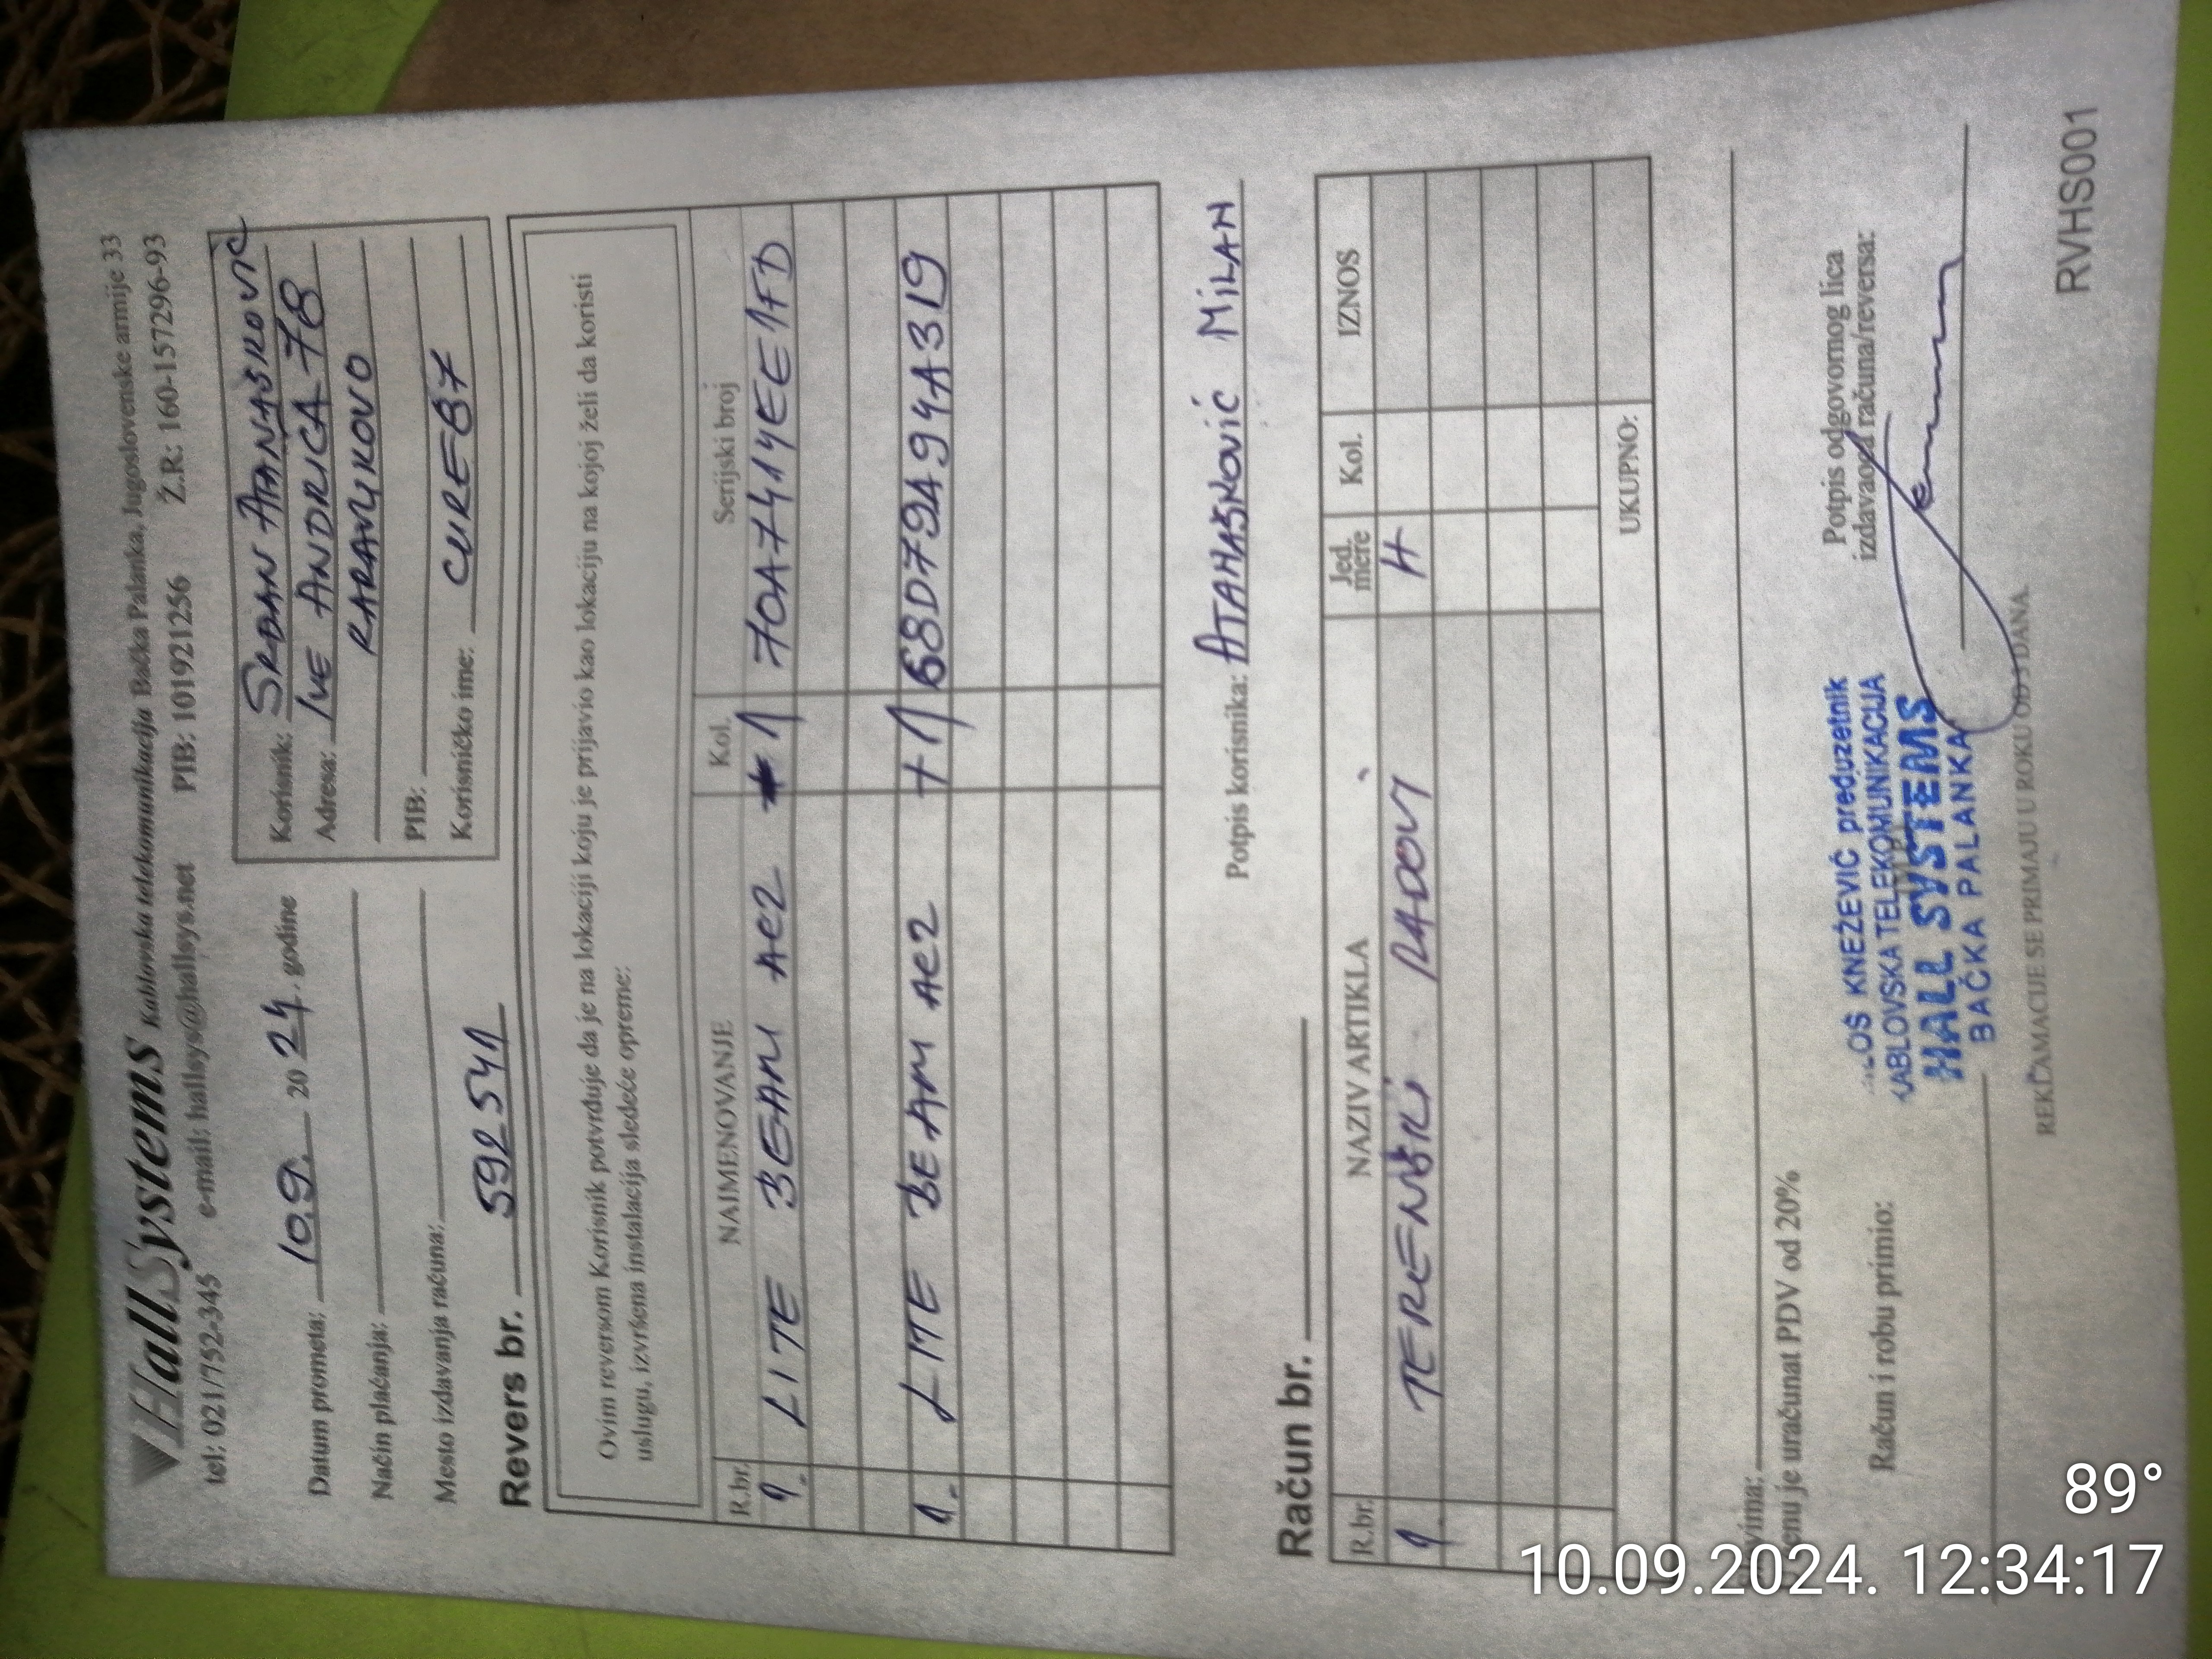 HallSystems Kablovska telekomunikacija Bačka Palanka, Jugoslovenske armije 33
tel: 021/752-345 e-mail: hallsys@hallsys.net PIB: 101921256 Ž.R: 160-157296-93
Datum prometa: 10.9. 20 24. godine
Način plaćanja:
Mesto izdavanja računa:
Korisnik: SRĐAN ATANASKOVIĆ
Adresa: IVE ANDRIĆA 78
KARAVUKOVO
PIB:
Korisničko ime: CURE87
Revers br. 592541
Ovim reversom Korisnik potvrđuje da je na lokaciji koju je prijavio kao lokaciju na kojoj želi da koristi
uslugu, izvršena instalacija sledeće opreme:
R.br. NAIMENOVANJE Kol. Serijski broj
1. LITE BEAM AC2 1 70A7414EE1FD
1. LITE BEAM AC2 +1 68D79A94A319
Potpis korisnika: ATANASKOVIĆ MILAN
Račun br.
R.br. NAZIV ARTIKLA Jed. mere Kol. IZNOS
1. TERENSKI RADOVI H
UKUPNO:
enu je uračunat PDV od 20%
Račun i robu primio:
Potpis odgovornog lica
izdavaoca računa/reversa:
LOŠ KNEŽEVIĆ preduzetnik
KABLOVSKA TELEKOMUNIKACIJA
HALL SYSTEMS
BAČKA PALANKA
REKLAMACIJE SE PRIMAJU U ROKU OD 3 DANA.
RVHS001
89°
10.09.2024. 12:34:17